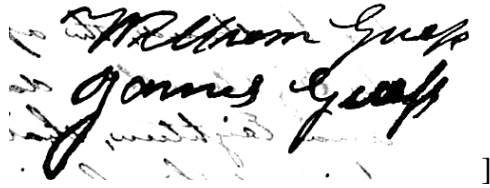 William Guess
James Guess
]